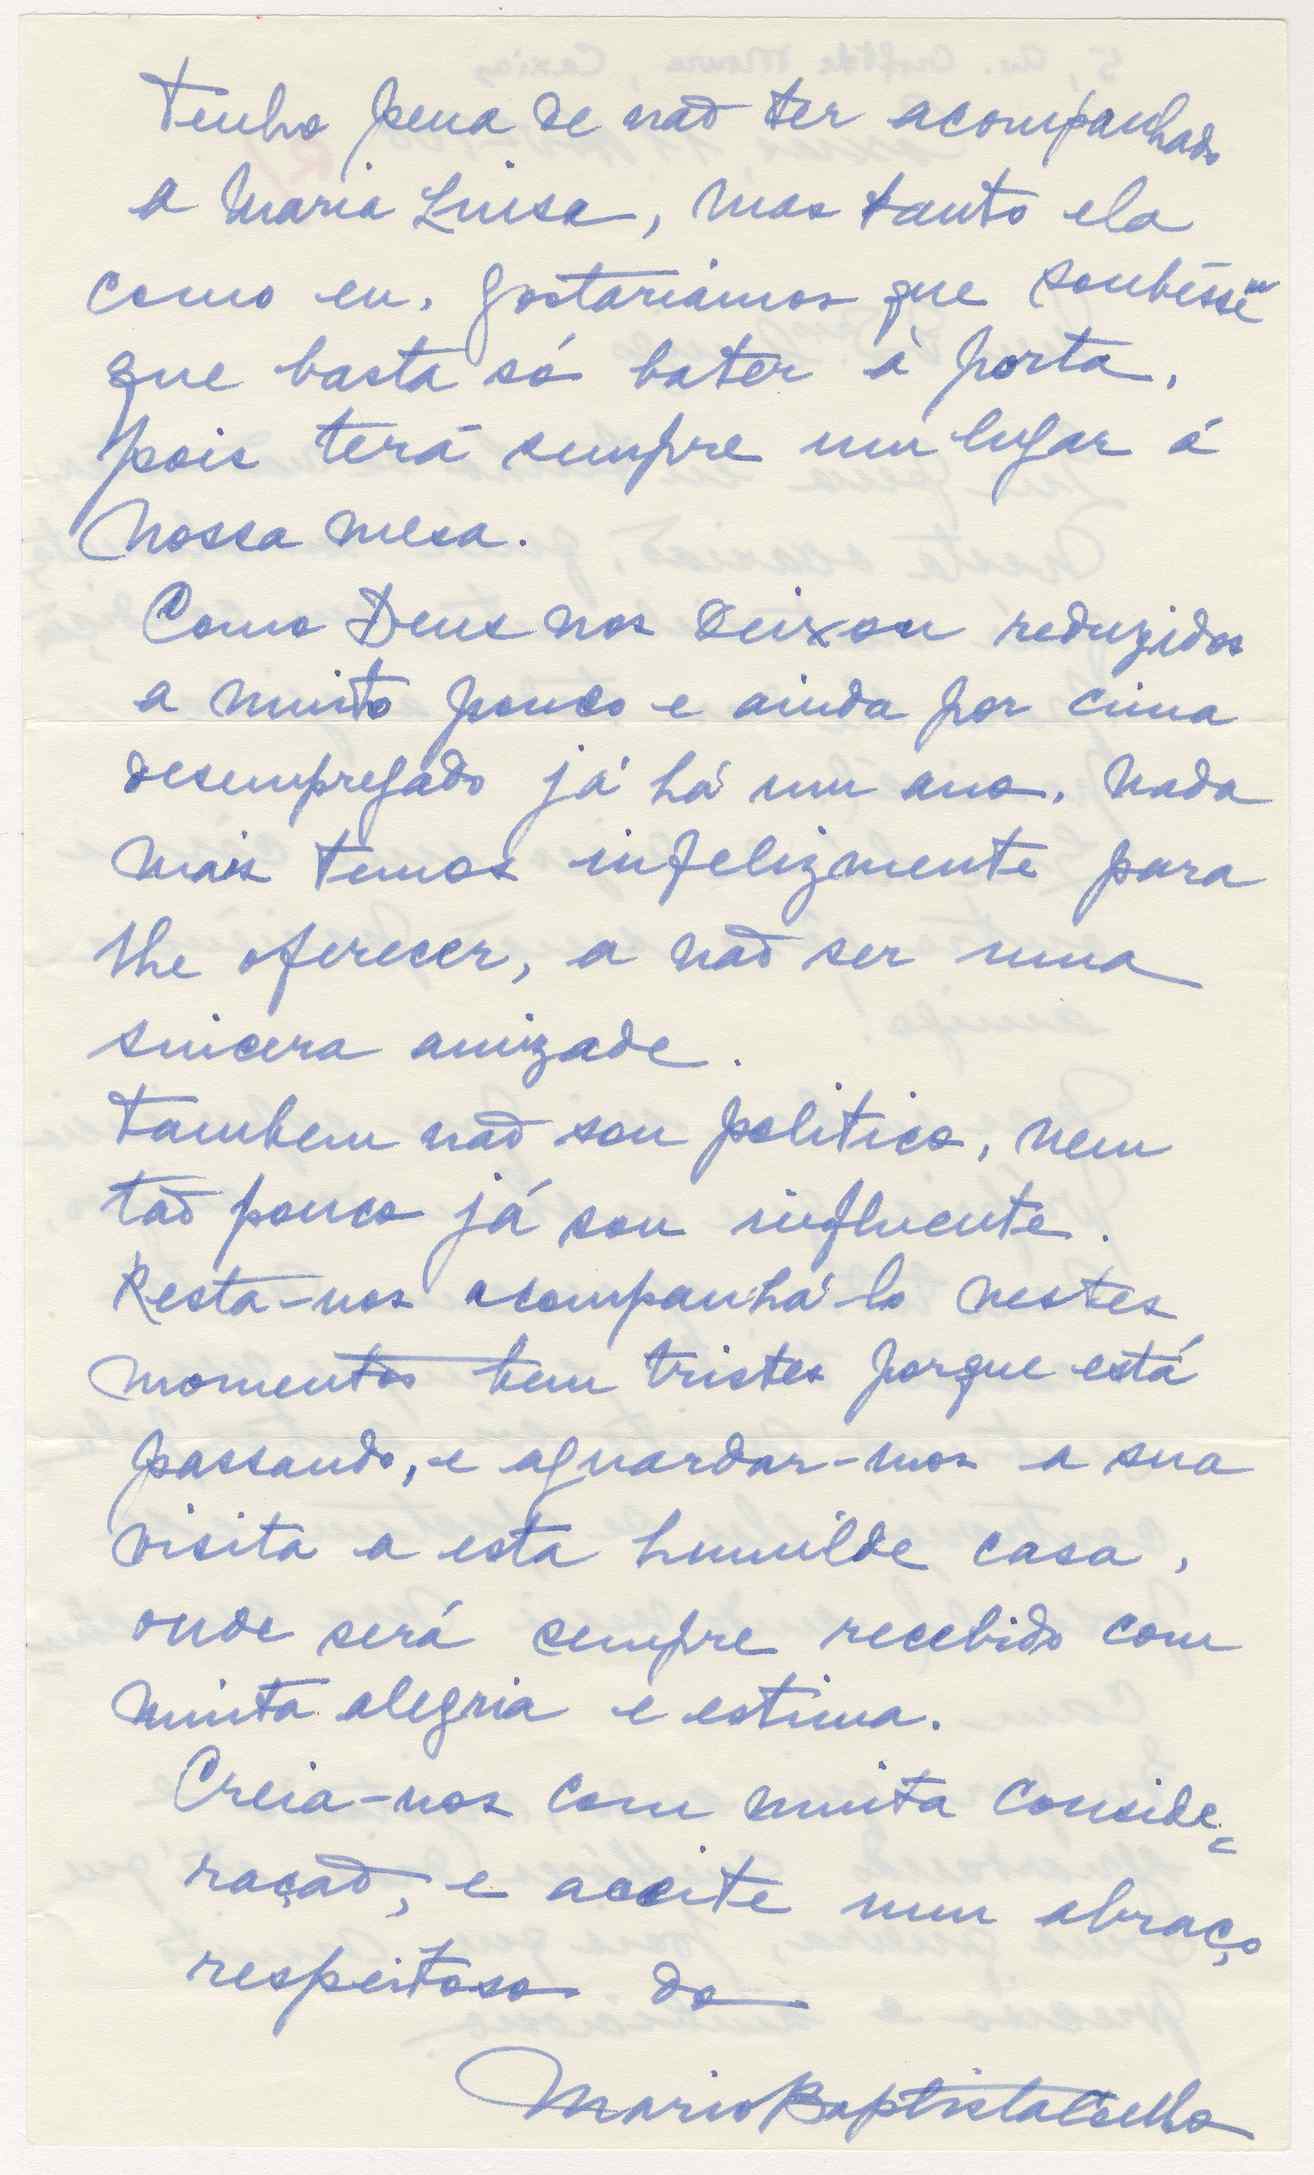 Tenho pena de não ter acompanhado
a Maria Luisa, mas tanto ela
como eu, gostariamos que soubésse
que basta só bater à porta,
pois terá sempre um lugar á
nossa mesa.
Como Deus nos deixou reduzidos
a muito pouco e ainda por cima
desempregado já há um ano, nada
mais temos infelizmente para
lhe oferecer, a não ser uma
sincera amizade.
Tambem não sou politico, nem
tão pouco já sou influente.
Resta-nos acompanhá-lo nestes
momentos bem tristes porque está
passando, e aguardar-mos a sua
visita a esta humilde casa,
onde será sempre recebido com
muita alegria e estima.
Creia-nos com muita conside=
ração, e aceite um abraço
respeitoso do
Mario Baptista Coelho